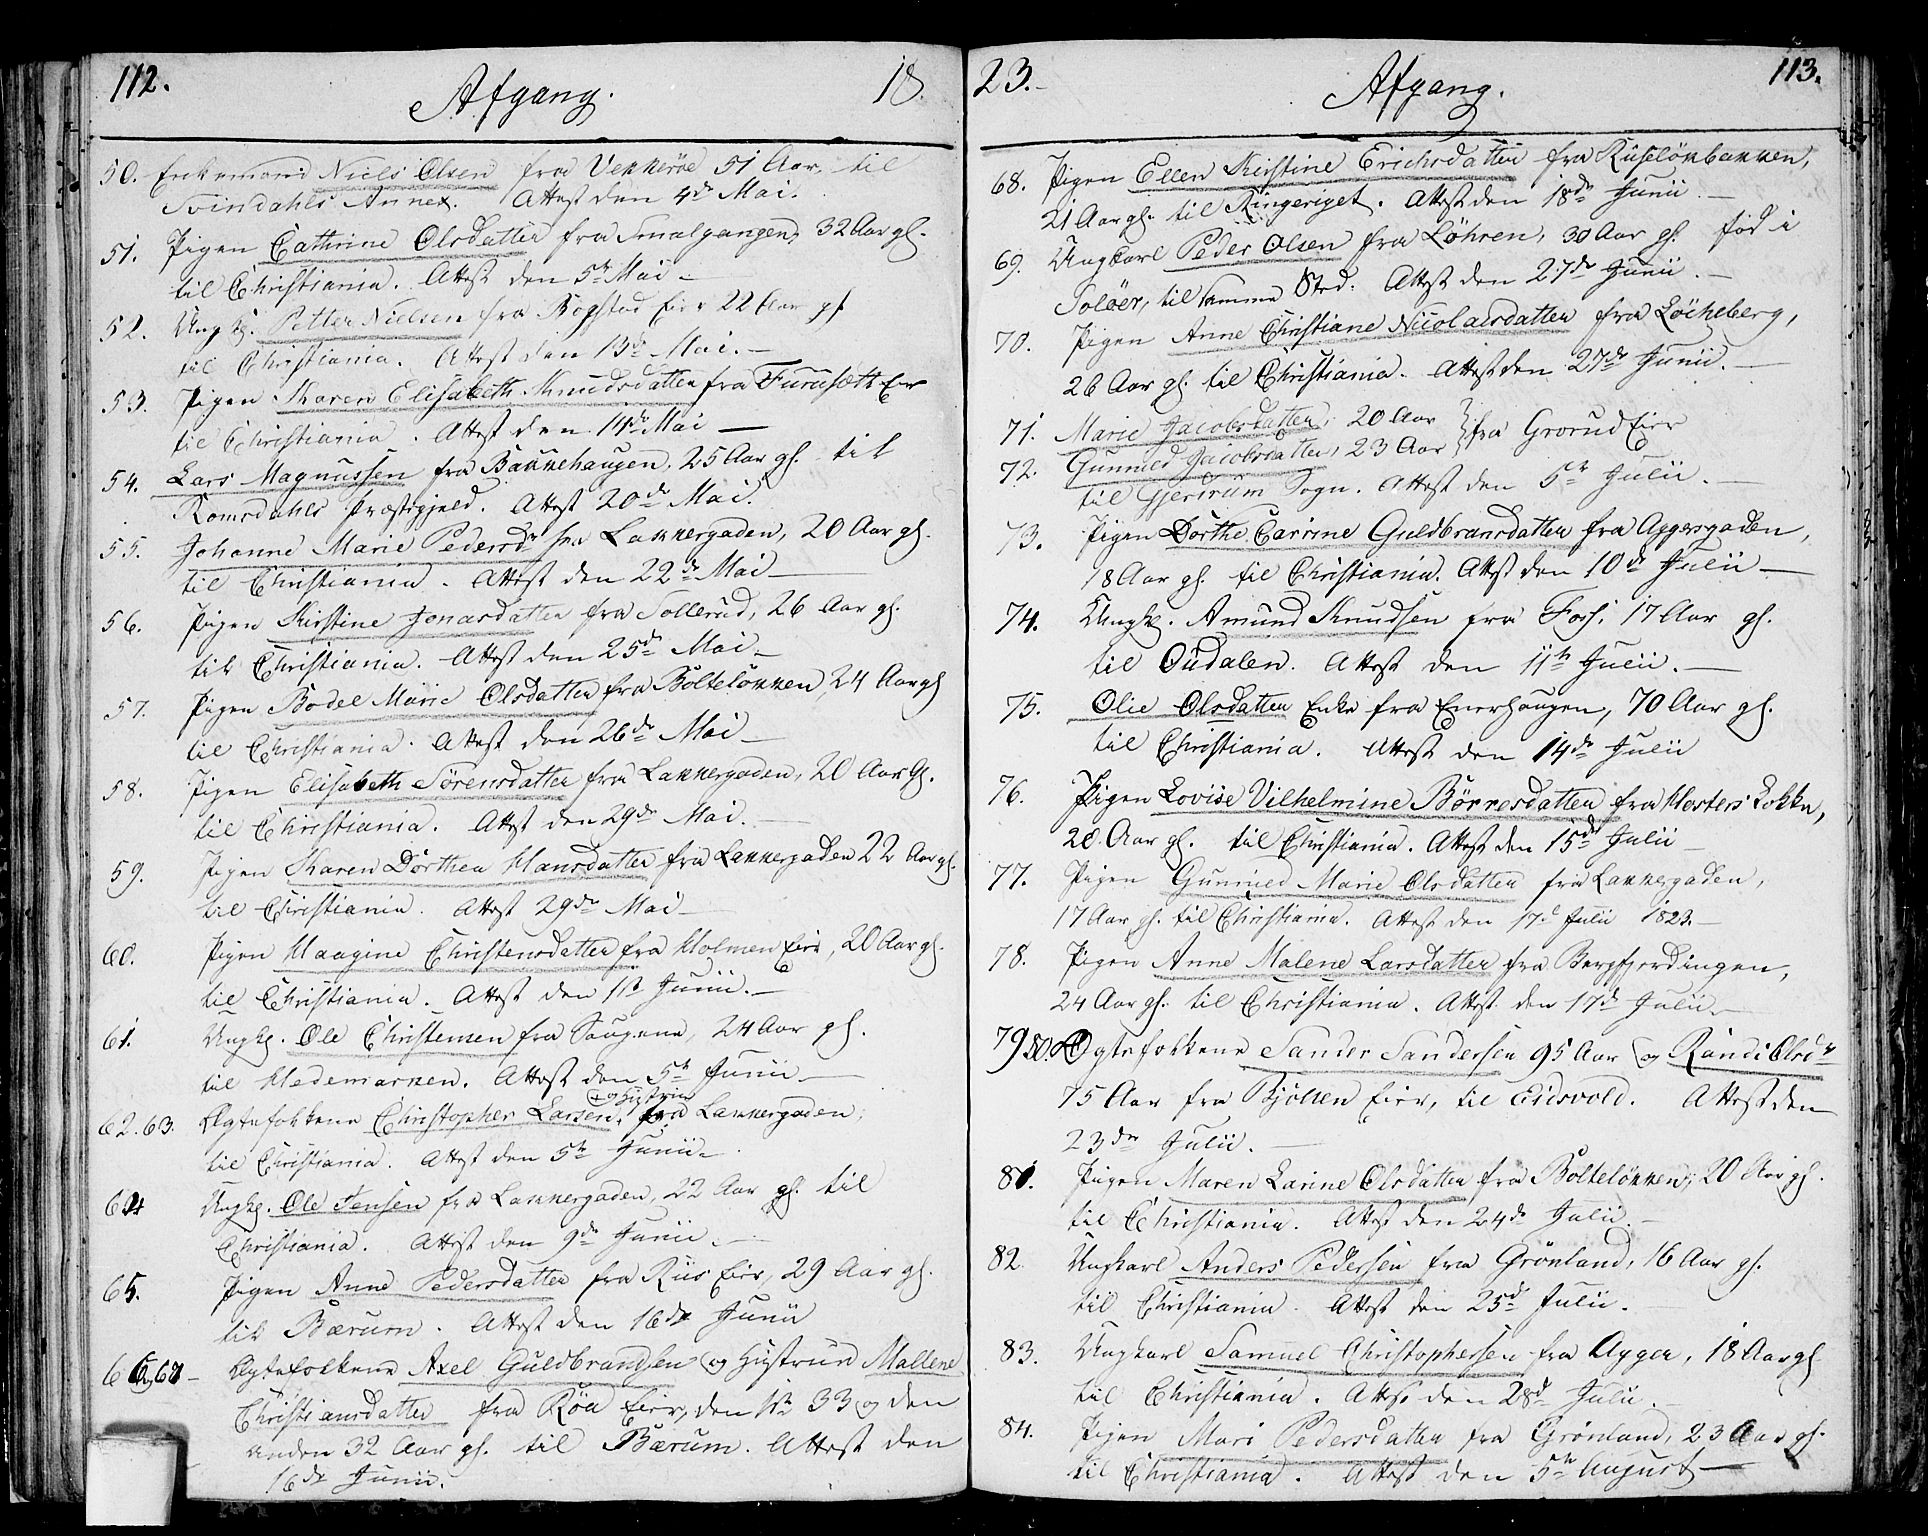 112.
Afgang.
18
50. Enkemand Niels Olsen fra Vekkeröe 51 Aar, til
Svindahls Annex. Attest den 4de Mai.
51. Pigen Cathrine Olsdatter fra Smalgangen, 32 Aar gl.
til Christiania. Attest den 5te Mai -
52. Ungk. Petter Nielsen fra Bogstad Eier 22 Aar gl
til Christiania. Attest den 13de Mai. -
53. Pigen Karen Elisabeth Knudsdatter fra Furusætt Eier
til Christiania. Attest den 14de Mai -
54. Lars Magnussen fra Bakkehaugen, 25 Aar gl. til
Romsdahls Præstegjeld. Attest 20de Mai.
55. Johanne Marie Pedersdr fra Lakkergaden, 20 Aar gl.
til Christiania. Attest den 22de Mai -
56. Pigen Kirstine Jonasdatter fra Sollerud, 26 Aar gl.
til Christiania. Attest den 25de Mai -
57. Pigen Bodel Marie Olsdatter fra Bolteløkken, 24 Aar gl
til Christiania. Attest den 26de Mai -
58. Pigen Elisabeth Sörensdatter fra Lakkergaden, 20 Aar Gl.
til Christiania. Attest den 29de Mai. -
59. Pigen Karen Dorthea Hansdatter fra Lakkergaden 22 Aar gl.
til Christiania. Attest 29de Mai -
60. Pigen Haagine Christensdatter fra Holmen Eier, 20 Aar gl.
til Christiania. Attest den 1ste Junii. -
61. Ungk. Ole Christensen fra Saugene, 24 Aar gl.
til Hedemarken. Attest den 5te Junii -
og Hustrue
62. 63. Ægtefolkene Christopher Larsen, fra Lakkergaden,
til Christiania. Attest den 5te Junii -
64 Ungk. Ole Jensen fra Lakkergaden, 22 Aar gl. til
Christiania. Attest den 9de Junii -
65. Pigen Anne Pedersdatter fra Riis Eier, 29 Aar gl.
til Bærum. Attest den 16de Junii
66 og 67 - Ægtefolkene Axel Guldbrandsen og Hustrue Mallene
Christiansdatter fra Röa Eier, den 1ste 33 og den
anden 32 Aar gl. til Bærum. Attest den
16de Junii.
23. -
Afgang.
113.
68. Pigen Ellen Kirstine Erichsdatter fra Ruseløkbakken,
21 Aar gl. til Ringeriget. Attest den 18de Junii -
69. Ungkarl Peder Olsen fra Løhren, 30 Aar gl. fød i
Soløer, til samme Sted. Attest den 27de Junii. -
70. Pigen Anne Christiane Nicolaisdatter fra Løcheberg,
26 Aar gl. til Christiania. Attest den 27de Junii. -
71. Marie Jacobsdatter, 20 Aar } fra Grorud Eier
72. Gunnild Jacobsdatter, 23 Aar
til Gjerdrum Sogn. Attest den 5te Julii. -
73. Pigen Dorthe Carine Guldbransdatter fra Aggersgaden,
18 Aar gl. til Christiania. Attest den 10de Julii -
74. Ungk. Amund Knudsen fra Foss, 17 Aar gl.
til Oudalen. Attest den 11te Julii. -
75. Olie Olsdatter Enke fra Enerhaugen, 70 Aar gl.
til Christiania. Attest den 14de Julii
76. Pigen Lovise Vilhelmine Börresdatter fra Klosters Løkke,
20 Aar gl. til Christiania. Attest den 15de Julii -
77. Pigen Gunnild Marie Olsdatter fra Lakkergaden,
17 Aar gl. til Christiania. Attest den 17d Julii 1823. -
78. Pigen Anne Malene Larsdatter fra Bergfjerdingen,
24 Aar gl. til Christiania. Attest den 17de Julii -
79 80. Ægtefolkene Sander Sandersen 95 Aar og Randi Olsdr
75 Aar fra Bjölsen Eier, til Eidsvold. Attest den
23de Julii. -
81. Pigen Maren Karine Olsdatter fra Bolteløkken, 20 Aar gl.
til Christiania. Attest den 24de Julii. -
82. Ungkarl Anders Pedersen fra Grönland, 16 Aar gl.
til Christiania. Attest den 25de Julii.
83. Ungkarl Samuel Christophersen fra Agger, 18 Aar gl
til Christiania. Attest den 28d Julii. -
84. Pigen Mari Pedersdatter fra Grønland, 23 Aar gl.
til Christiania. Attest den 5te August -